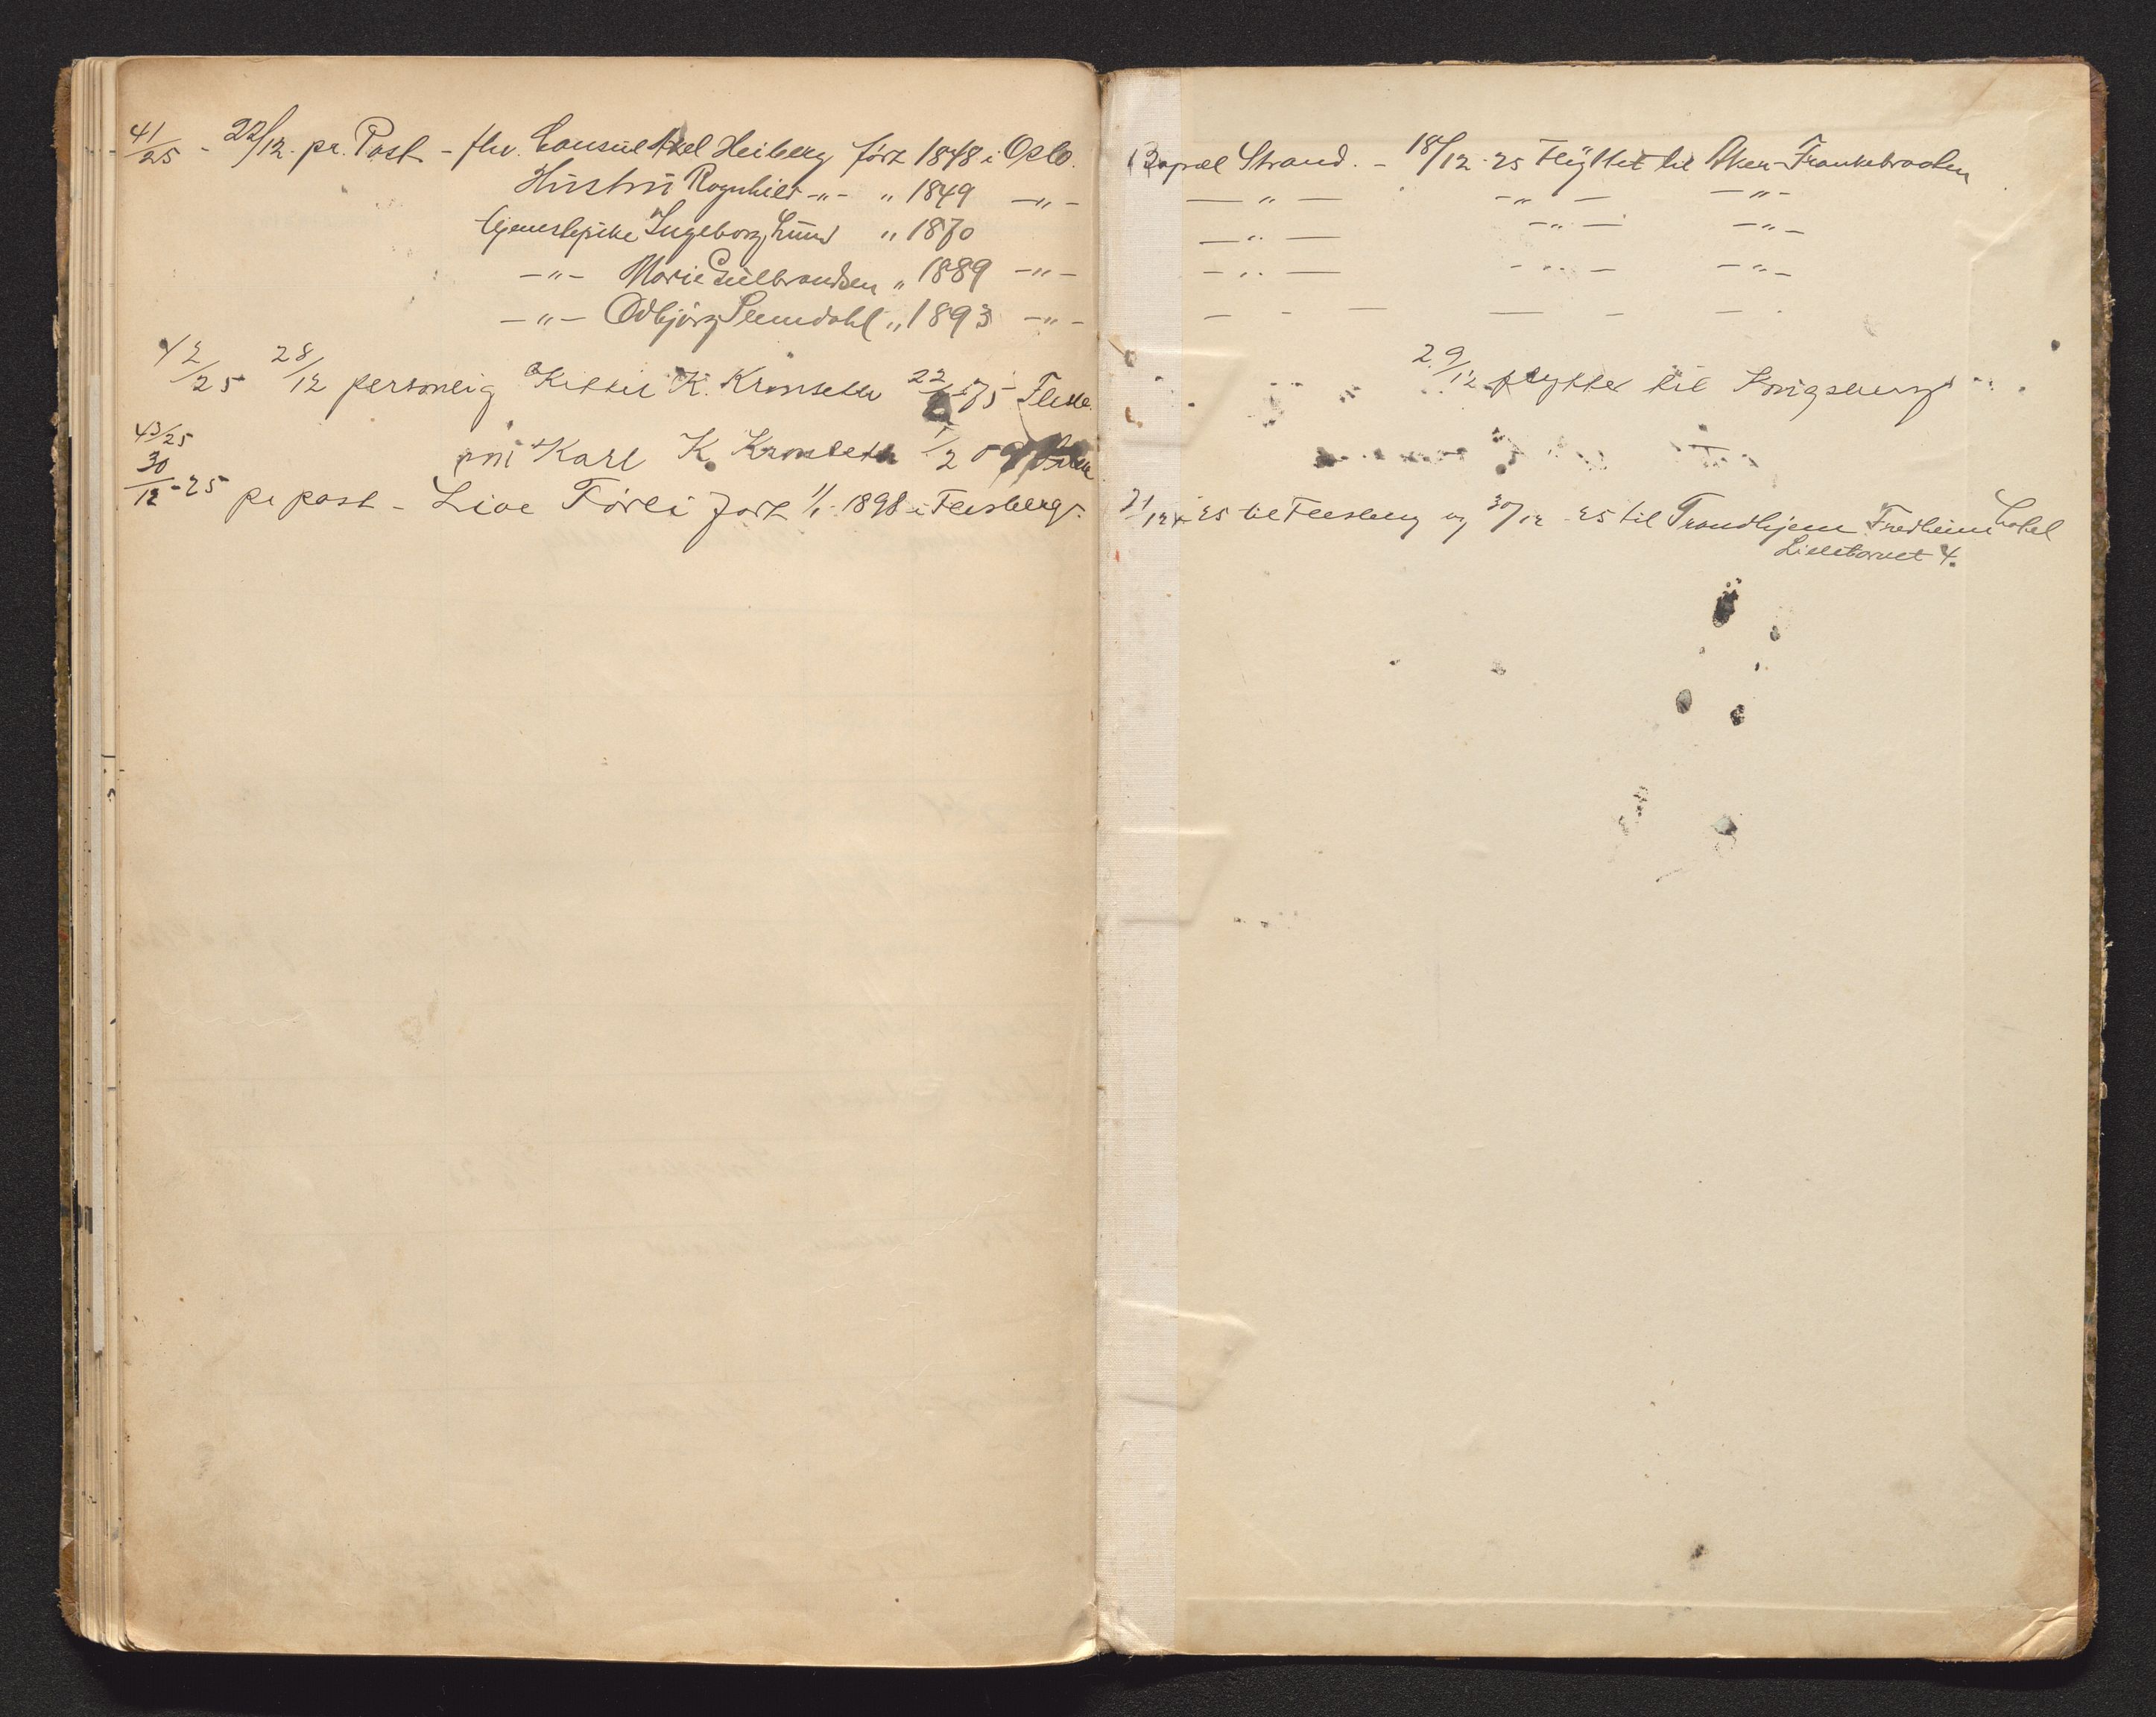 41/25 - 22/12. pr. Post - fhv. Consul Axel Heiberg förz 1848 i Oslo.
Hustru Ragnhild -"- " 1849 -"-
tjenestepike Ingeborg Lund " 1870
-"- Marie Gulbrandsen " 1889 -"-
-"- Odbjörg Slemdahl " 1893 -"-
42/25 28/12 personlig Kittil K. Kronseth 22 75 Flesb.
43/25 Karl K Kronseth 1/2 09
30/12-25 pr post - Live Förli född 1/1 - 1898 i Flesberg.
Strand. - 18/12-25 Flyttet til Aker-Frankebraaten
-"- -"- -"-
-"- -"- -"-
-"- -"- -"-
- - - - - - -
29/12 flytter til Kongsberg
21/12 25 til Flesberg og 30/12 - 25 til Trondhjem Fredheim Hotel
Lilletorvet 4.